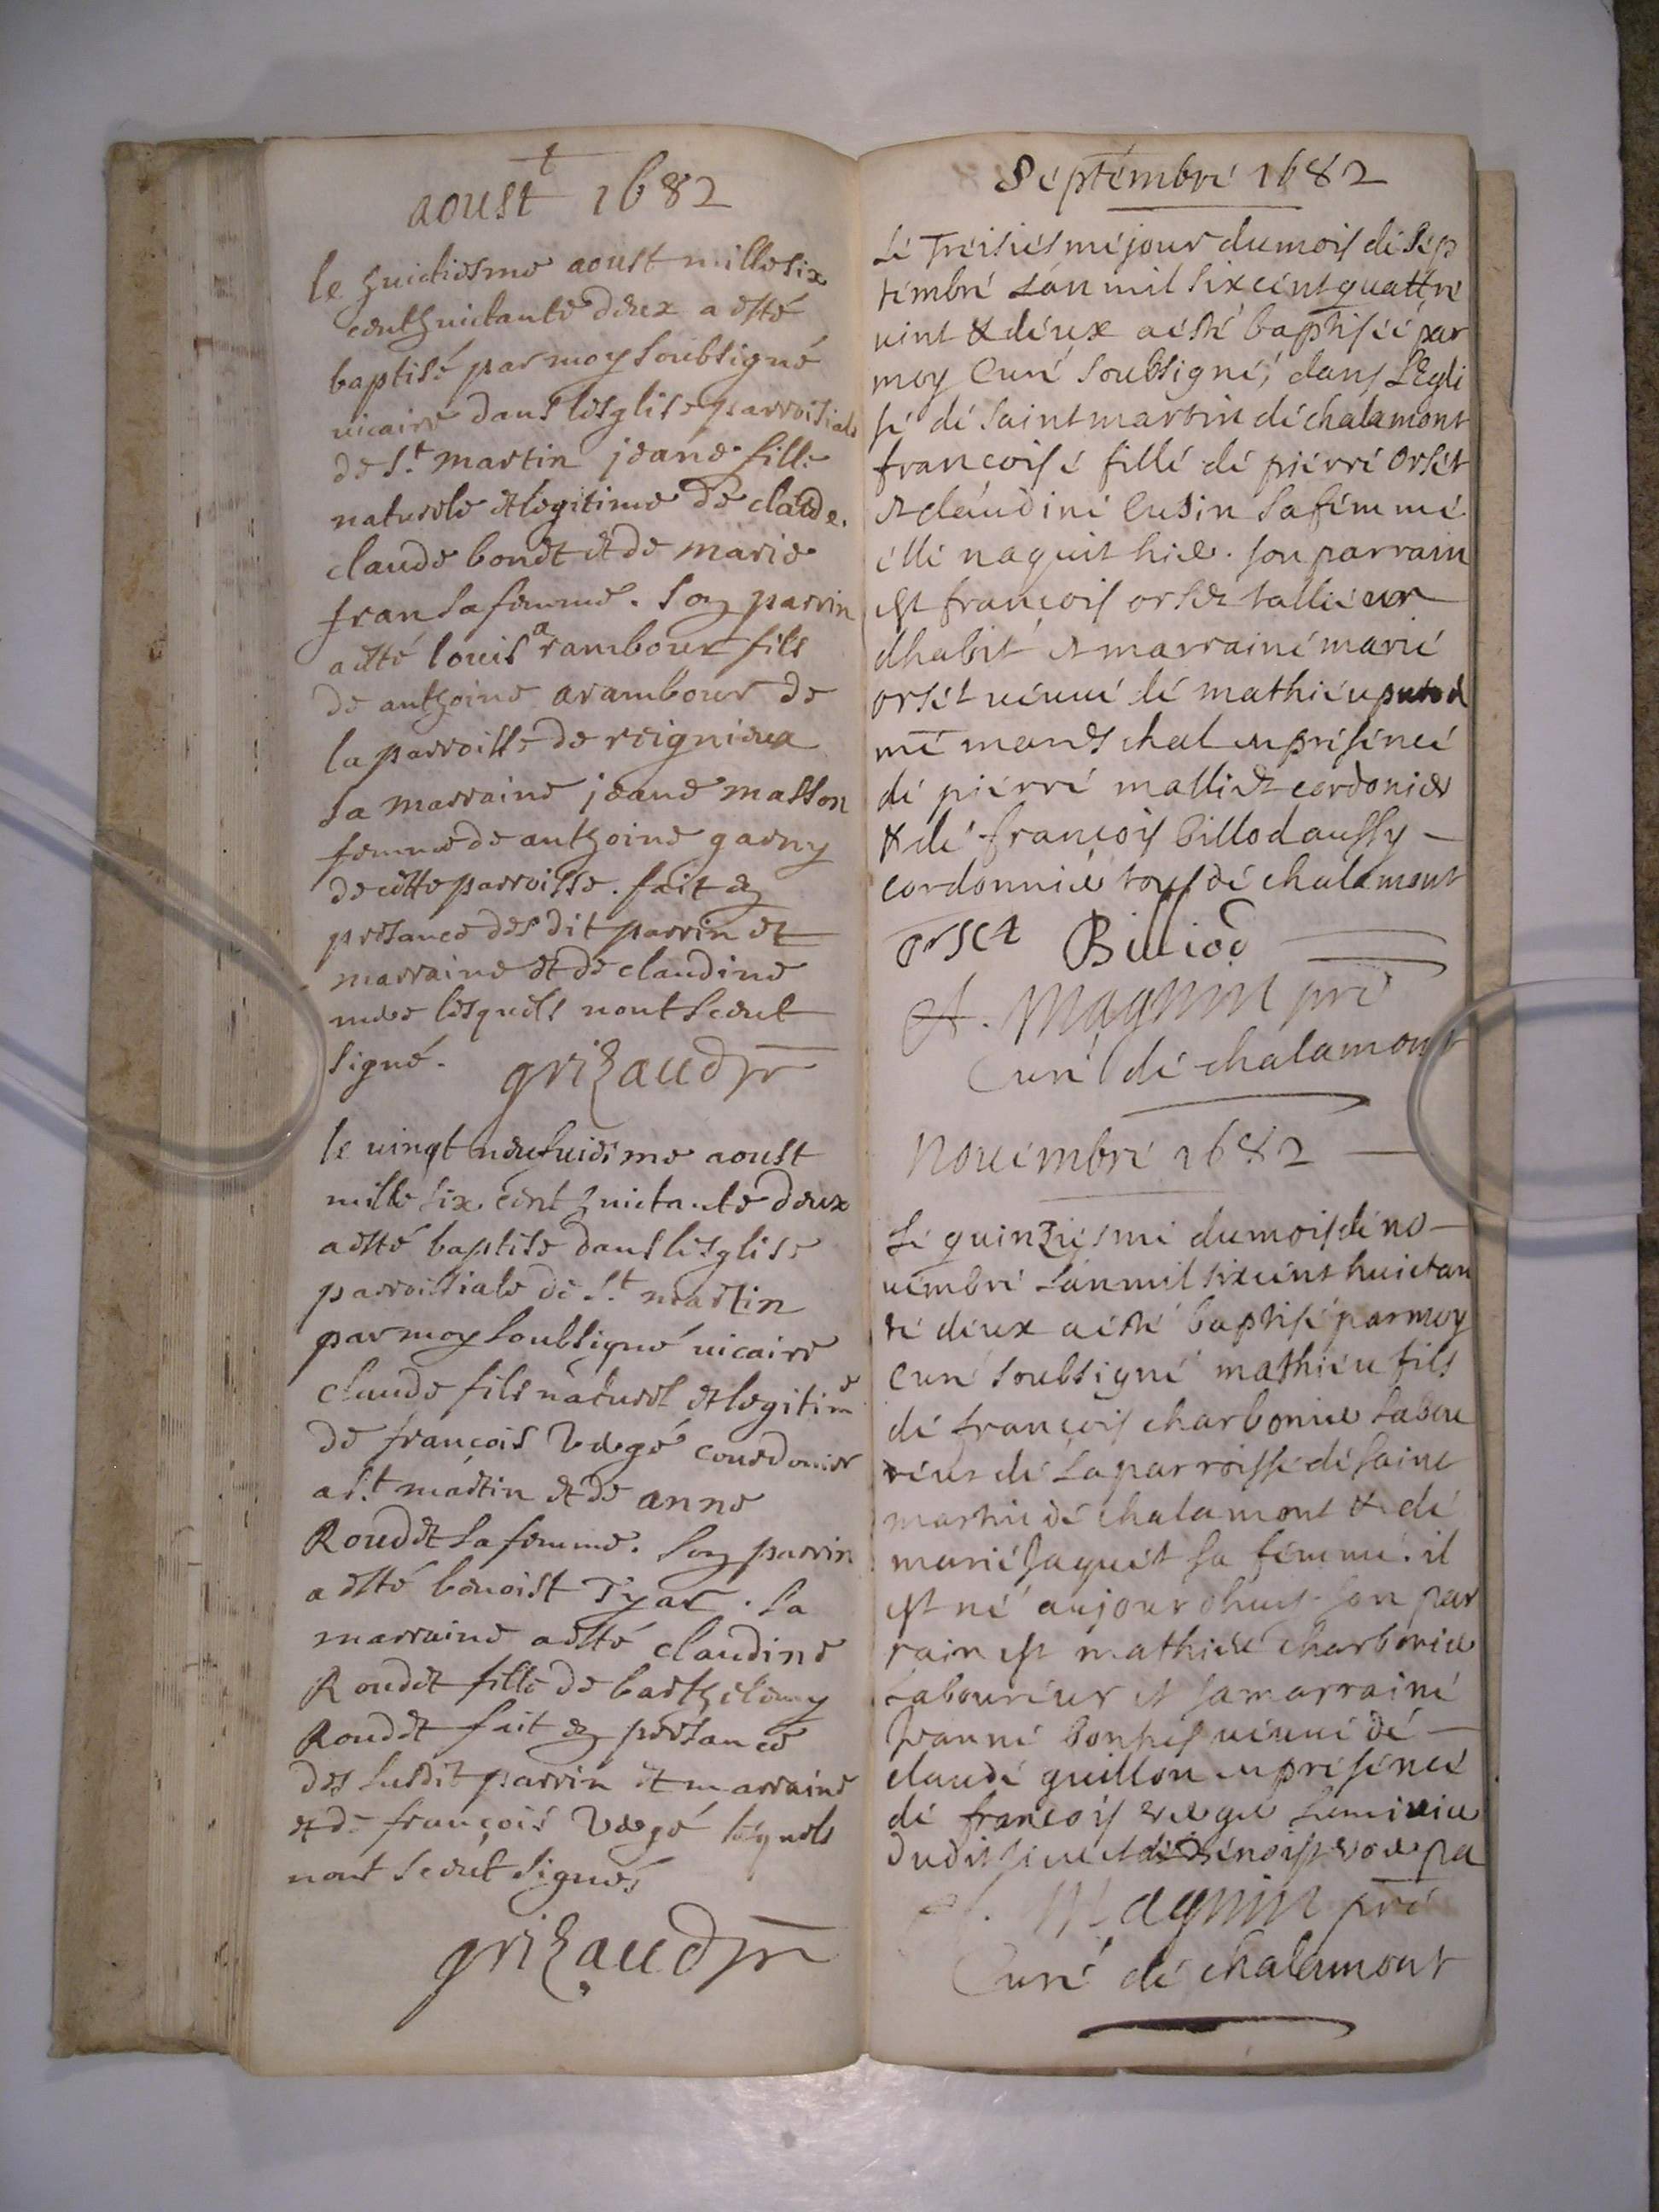 aoust 1682
le huictiesme aoust mille six
cent huictante deux a esté
baptisé par moy soubsigné
vicaire dans lesglise parroisiale
de S.t martin jeane fille
naturele et legitime de claude
claude bondt et de marie
fran sa femme. son parrin
a esté louis arambour fils
de anthoine arambour de
la parroisse de reignieux
sa marraine jeane masson
femme de anthoine gaeny
de cette parroisse. fait en
presance des dit parrin et
marraine et de claudine
lesquels nont sceut
signé. grizaud pr
le vingt neufuiesme aoust
mille six cent huictante deux
a esté baptise dans lesglise
parroissiale de S.t martin
par moy soubsigné vicaire
claude fils naturel et legitime
de françois Vergé courdonier
a S.t martin et de anne
Roudet sa femme. son parrin
a esté benoist Tyar. sa
marraine a esté claudine
Roudet fille de barthelemy
Roudet fait en presance
des susdit parrin et marraine
et de françois Vergé lesquels
nont sceut signés
grizaud pr
Septembre 1682
Le Treisiesme jour du mois de sep
tembre Lan mil six cent quattre
vint & deux a esté baptisée par
moy Curé soubsigné, dans L'Egli
se de saint martin de chalamont
françoise fille de pierre Orset
et claudine Cusin sa femme
elle naquit hier. son parrain
est françois orset tallieur
dhabit et marraine marie
orset veuve de mathieu putod
me marechal en presence
de pierre malliet cordonier
& de françois billod aussy
cordonnier tous de chalamont
orset Billiod
A. Magnin pre
Curé de chalamont
Novembre 1682
Le quinziesme du mois de no
vembre Lan mil six cent huictan
te deux a esté baptisé par moy
Curé soubsigné mathieu fils
de françois charbonier labou
reur de La parroisse de saint
martin de chalamont & de
marie Jaquet sa femme. il
est né aujourdhuy. son par
rain est mathieu charbonier
Laboureur et sa marraine
Jeanne bonpis veuve de
claude guillon en presence
de françois verger
dudit lieu et de benoist
A. Magnin pre
Curé de chalamont